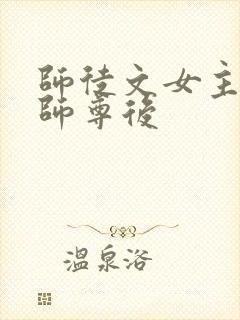 師徒文女主
師尊後
溫泉浴